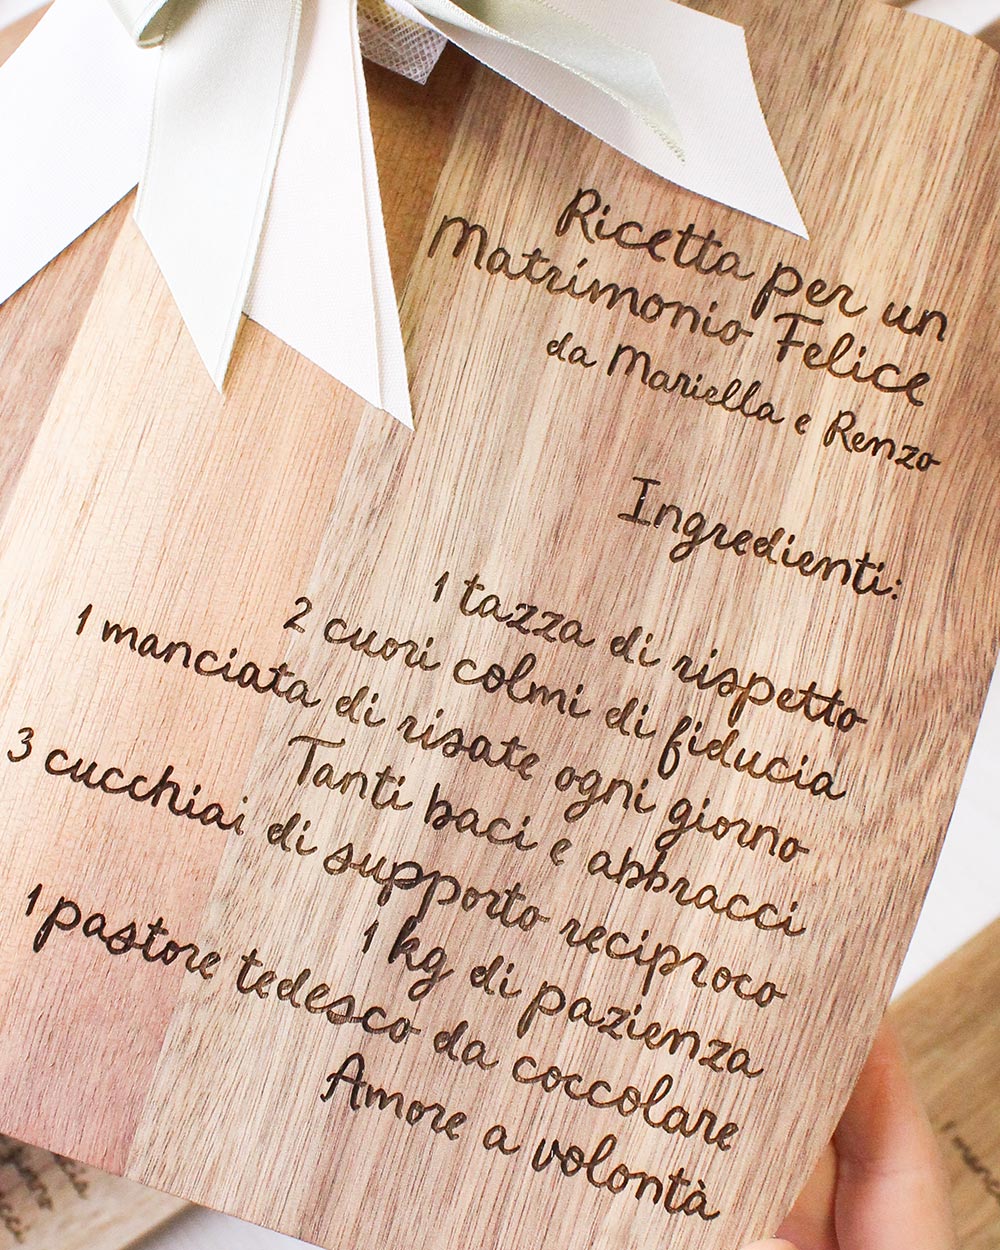 Ricetta per un
Matrimonio Felice
da Mariella e Renzo
Ingredienti:
1 tazza di rispetto
2 cuori colmi di fiducia
1 manciata di risate ogni giorno
Tanti baci e abbracci
3 cucchiai di supporto reciproco
1 kg di pazienza
1 pastore tedesco da coccolare
Amore a volontà